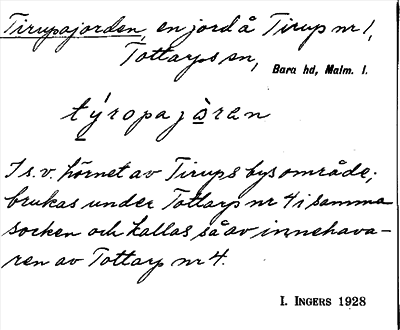 Tirupajorden, en jord å Tirup nr 1,
Tottarps sn,
Bara hd, Malm. l.
týropajòran
I s.v. hörnet av Tirups bys område;
brukas under Tottarp nr 4 i samma
socken och kallas så av inneha-
ren av Tottarp nr 4.
I. INGERS 1928